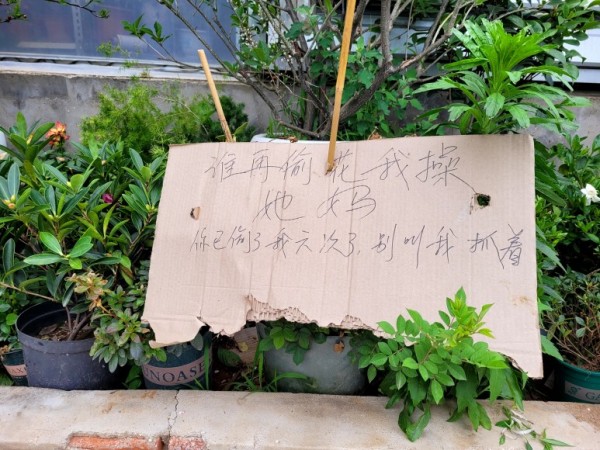 谁再偷花我操
她妈
你已偷了我六次了,别叫我抓着
ENOASE